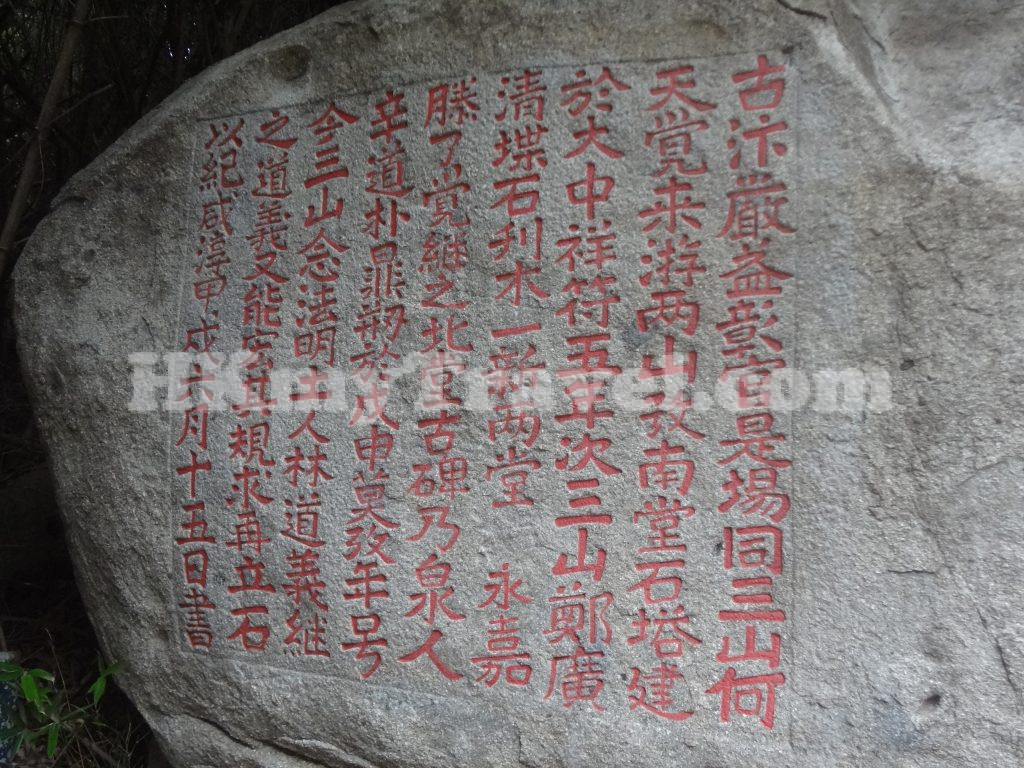 古汴嚴益彰官是場同三山何
天覺来游两山攷南堂石塔建
於大中祥符五年次三山鄭廣
清堞石刋木一新两堂 永嘉
滕了覺継之北堂古碑乃泉人
辛道朴鼎刱於戊申莫攷年号
今三山念法明土人林道義継
之道義又能宏其規求再立石
以紀咸淳甲戌六月十五日書
HKmyTravel.com